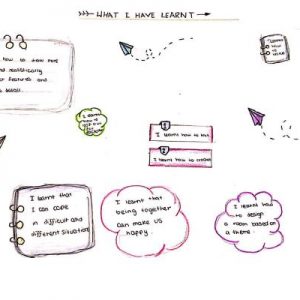 WHAT I HAVE LEARNT
how to draw
and realistically
features and
detail
I learnt
how to
I learned
how to
I learnt how to
I learnt how to
I learnt that
I can cope
in difficult and
different situation
I learnt that
being together
can make us
happy.
I learnt how
to design
a room based on
a theme